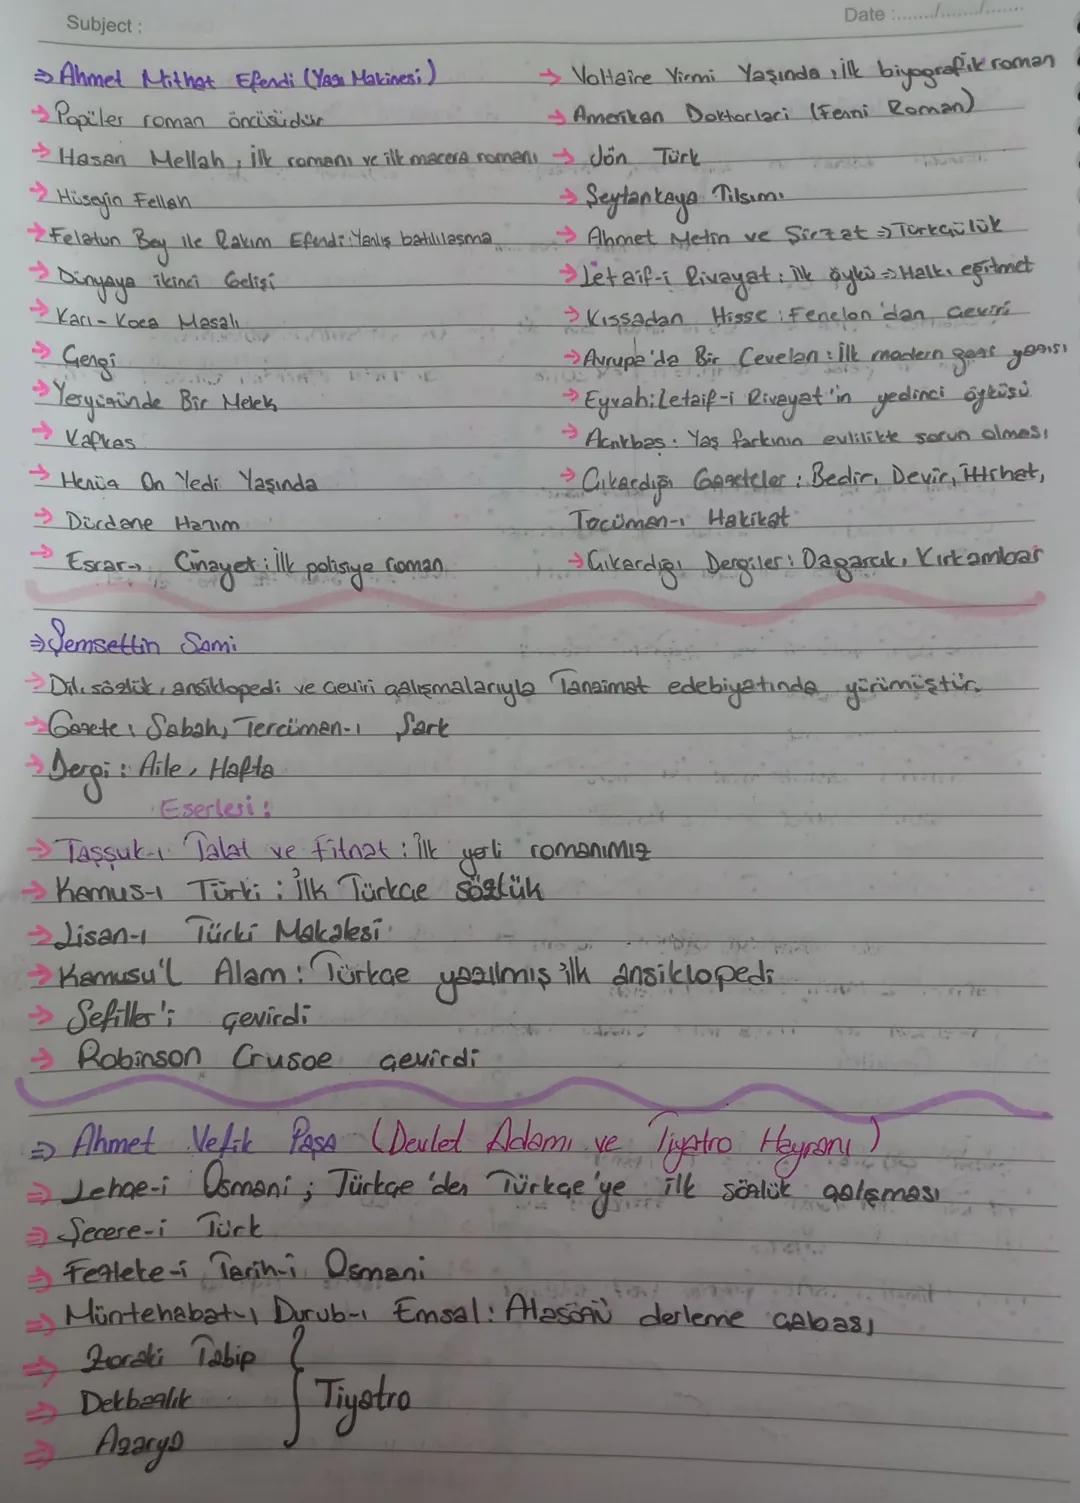 Subject :
Date :......../......../........
⇒ Ahmet Mithat Efendi (Yazı Makinesi)
→ Popüler roman öncüsüdür
→ Hasan Mellah, ilk romanı ve ilk macera romanı
→ Hüseyin Fellah
→ Felatun Bey ile Rakım Efendi: Yanlış batılılaşma
→ Dünyaya ikinci Gelişi
→ Karı-Koca Masalı
→ Çengi
→ Yeryüzünde Bir Melek
→ Kafkas
→ Henüz On Yedi Yaşında
→ Dürdane Hanım
→ Esrar-ı Cinayet: ilk polisiye roman
→ Voltaire Yirmi Yaşında, ilk biyografik roman
→ Amerikan Doktorları (Fenni Roman)
→ Jön Türk
→ Şeytankaya Tılsımı
→ Ahmet Metin ve Şirzat ⇒ Türkçülük
→ Letaif-i Rivayat: ilk öykü ⇒ Halkı eğitmet
→ Kıssadan Hisse: Fenelon'dan çeviri
→ Avrupa'da Bir Cevelan: ilk modern gezi yazısı
→ Eyvah: Letaif-i Rivayat'in yedinci öyküsü
→ Açıkbaş: Yaş farkının evlilikte sorun olması
→ Çıkardığı Gazeteler: Bedir, Devir, ittihat,
Tocüman-ı Hakikat
→ Çıkardığı Dergiler: Dağarcık, Kırkambar
⇒ Şemsettin Sami
→ Dil, sözlük, ansiklopedi ve çeviri çalışmalarıyla Tanzimat edebiyatında yürümüştür.
→ Gazete: Sabah, Tercüman-ı Şark
→ Dergi: Aile, Hafta
Eserleri:
→ Taşşuk-ı Talat ve Fitnat: ilk yerli romanımız
→ Kamus-ı Türki: ilk Türkçe sözlük
→ Lisan-ı Türki Makalesi
→ Kamusu'l Alam: Türkçe yazılmış ilk ansiklopedi
→ Sefiller'i çevirdi
→ Robinson Crusoe çevirdi
⇒ Ahmet Vefik Paşa (Devlet Adamı ve Tiyatro Hayranı)
⇒ Lehçe-i Osmani; Türkçe'den Türkçe'ye ilk sözlük çalışması
⇒ Şecere-i Türk
⇒ Fezleke-i Tarih-i Osmani
⇒ Müntehabat-ı Durub-ı Emsal: Atasözü derleme çabası
⇒ Zoraki Tabip
⇒ Dekbazlık
⇒ Azarya
} Tiyatro